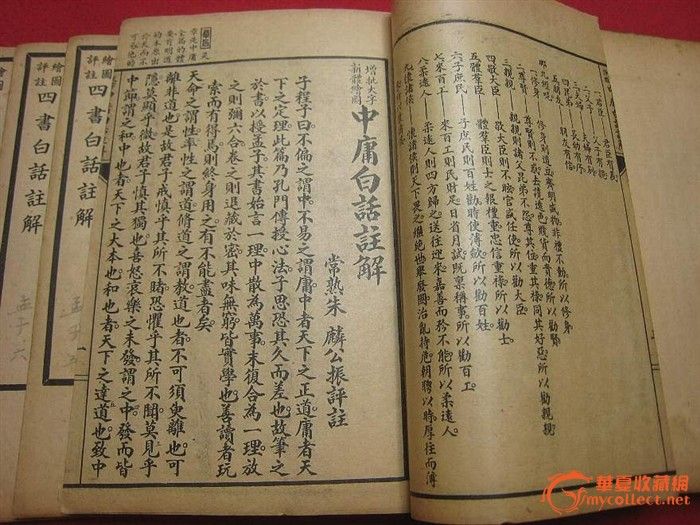 君臣有義
四兄弟——長幼有序
五朋友——朋友有信
修身則道立齊明盛服非禮不動所以修身
二尊賢——尊賢則不惑去讒遠色賤貨而貴德所以勸賢
三親親——親親則諸父昆弟不怨尊其位重其祿同其好惡所以勸親親
四敬大臣——敬大臣則不眩官盛任使所以勸大臣
五體羣臣——體羣臣則士之報禮重忠信重祿所以勸士
六子庶民——子庶民則百姓勸時使薄斂所以勸百姓
七來百工——來百工則民財足日省月試既稟稱事所以勸百工
八柔遠人——柔遠人則四方歸之送往迎來嘉善而矜不能所以柔遠人
九懷諸侯——懷諸侯則天下畏之繼絕世舉廢國治亂持危朝聘以時厚往而薄
增批大字
新體繪圖
中庸白話註解
常熟朱麟公振評註
子程子曰不偏之謂中。不易之謂庸中者天下之正道庸者天
下之定理此篇乃孔門傳授心法子思恐其久而差也故筆之
於書以授孟子其書始言一理中散為萬事末復合為一理放
之則彌六合卷之則退藏於密其味無窮皆實學也善讀者玩
索而有得焉則終身用之有不能盡者矣
天命之謂性率性之謂道修道之謂教道也者不可須臾離也可
離非道也是故君子戒慎乎其所不睹恐懼乎其所不聞莫見乎
隱莫顯乎微故君子慎其獨也喜怒哀樂之未發謂之中發而皆
中節謂之和中也者天下之大本也和也者天下之達道也致中
繪圖
評註
四書白話註解
孟子
繪圖
評註
四書白話註解
孟子六
華夏收藏網
mycollect.net